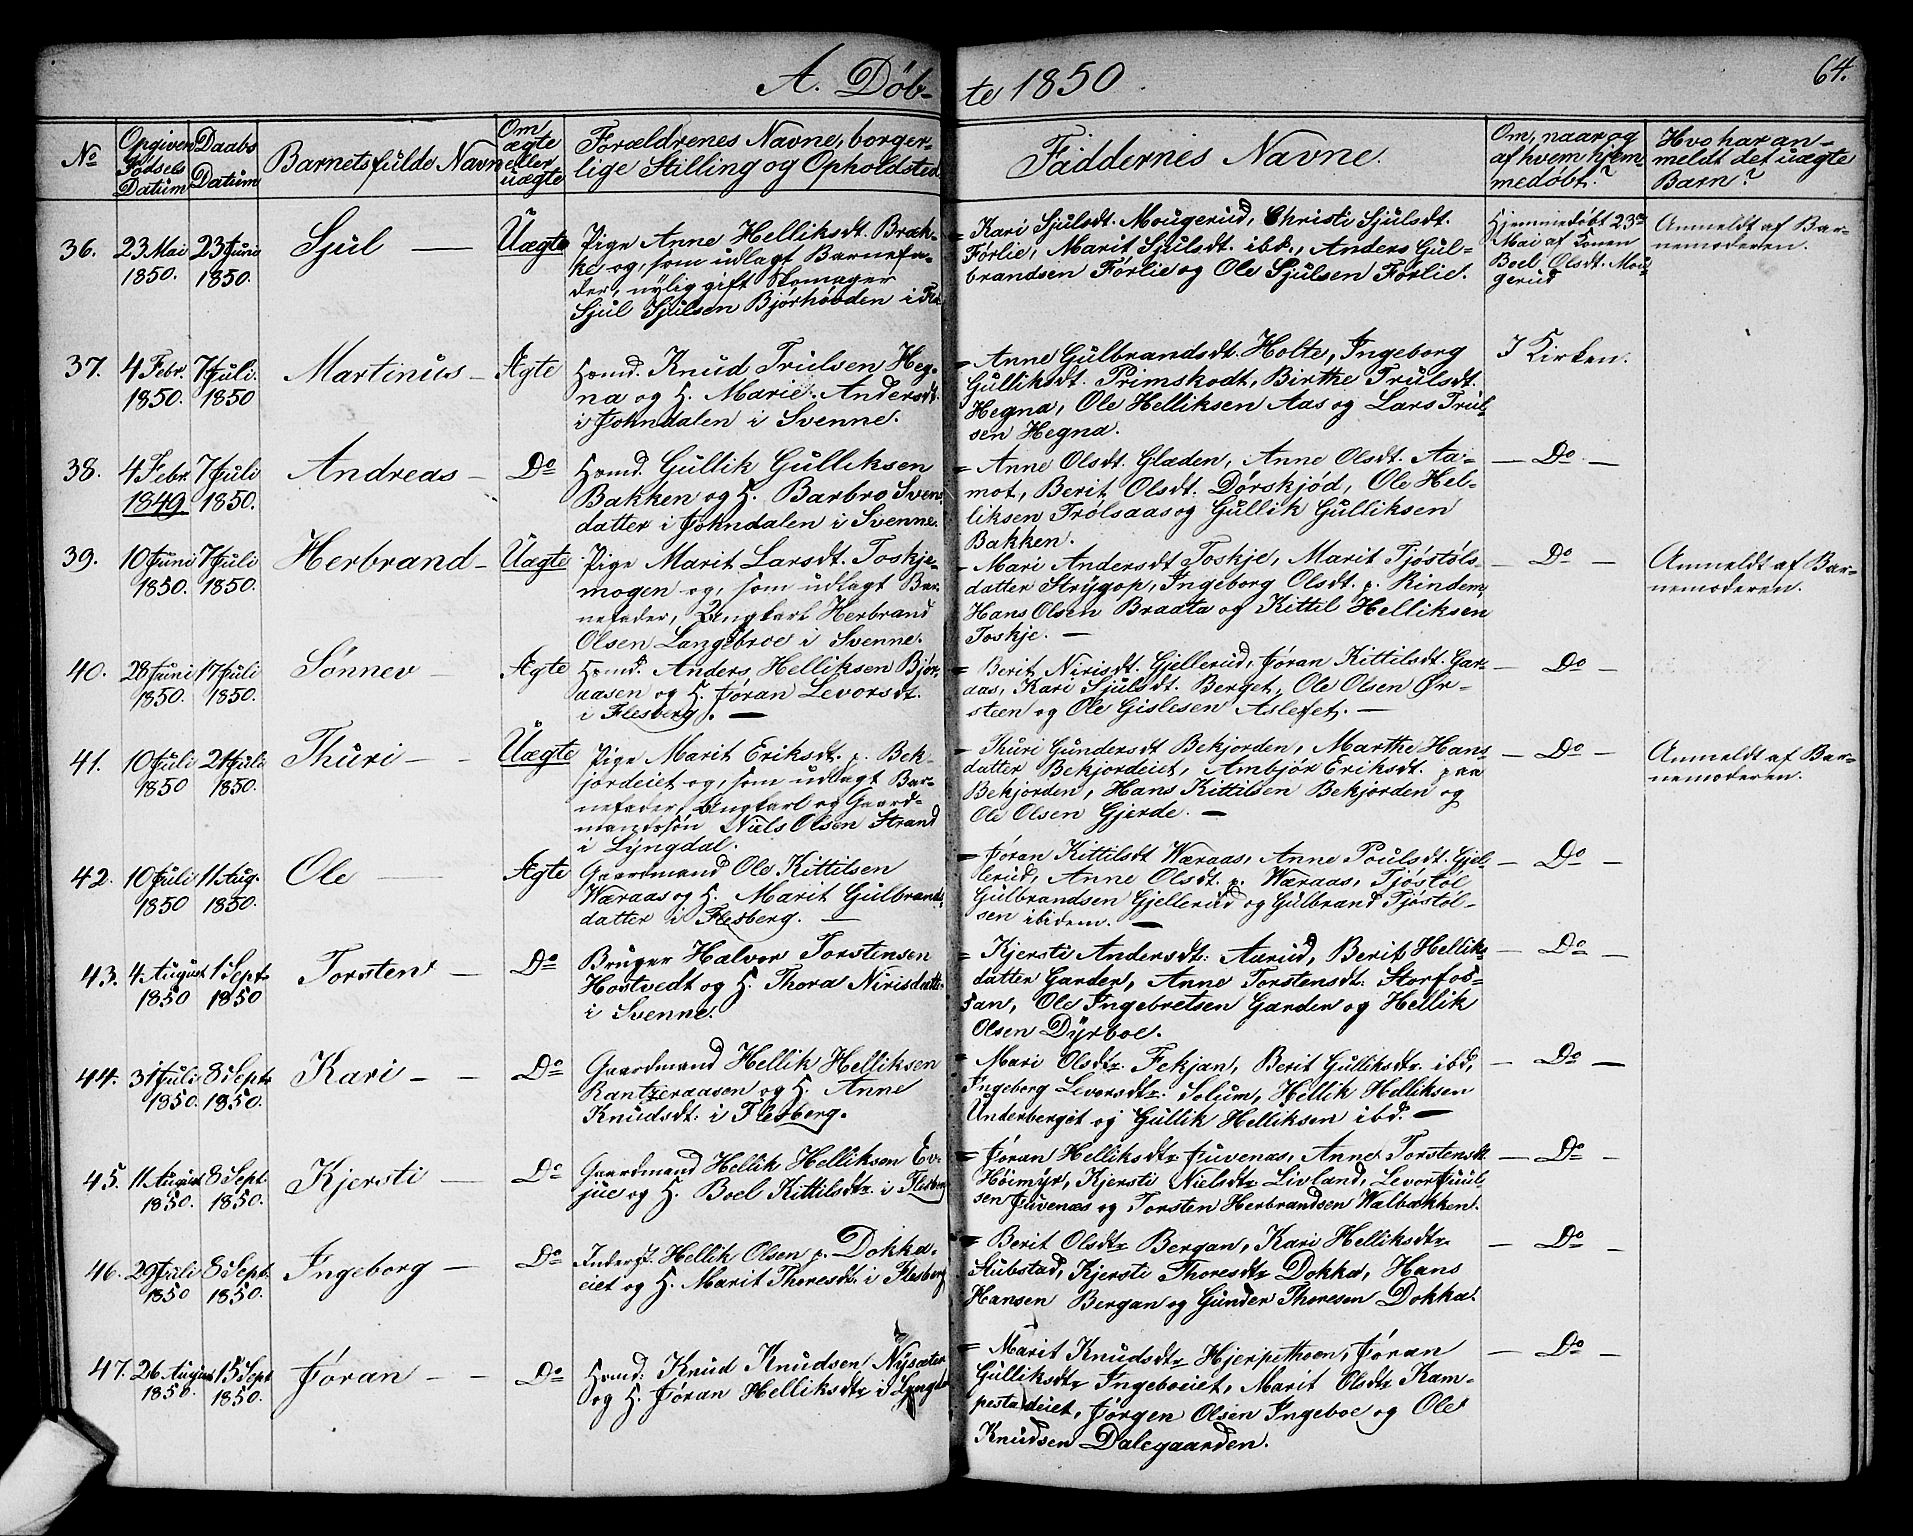 A. Døb-
te 1850.
64.
No
Opgiven Fødsels Datum
Daabs Datum
Barnets fulde Navn
Om ægte eller uægte
Forældrenes Navne, borger-
lige Stilling og Opholdsted.
Faddernes Navne.
Om, naar og af hvem hjem-
medøbt?
Hvo har an-
meldt det uægte
Barn?
36.
23 Mai 1850.
23 Juni 1850.
Sjul
Uægte
Pige Anne Helliksdt. Bræk-
ke og, som udlagt Barnefa-
der, nylig gift Skomager
Sjul Sjulsen Bjørhovden i
= Kari Sjulsdt. Mougerud, Christi Sjulsdt.
Førlie, Marit Sjulsdt. ibd., Anders Gul-
brandsen Førlie og Ole Sjulsen Førlie.
Hjemmedøbt 23de
Mai af Konen
Boel Olsdt. Mou-
gerud
Anmeldt af Bar-
nemoderen.
37.
4 Febr. 1850.
7 Juli. 1850
Martinus
Ægte
Hsmd. Knud Trulsen Heg-
na og H. Marie Andersdt.
i Johndalen i Svenne.
= Anne Gulbrandsdt. Holte, Ingeborg
Gulliksdt. Primskodt, Birthe Trulsdt.
Hegna, Ole Helliksen Aas og Lars Trul-
sen Hegna.
I Kirken.
38.
4 Febr. 1849.
7 Juli 1850.
Andreas
Do
Hsmd. Gullik Gulliksen
Bakken og H. Barbro Svens
datter i Johndalen i Svenne.
= Anne Olsdt. Glæden, Anne Olsdt. Aa-
mot, Berit Olsdt. Dørskjød, Ole Hel-
liksen Trølsaas og Gullik Gulliksen
Bakken.
— Do —
39.
10 Juni 1850.
7 Juli 1850.
Herbrand
Uægte
Pige Marit Larsdt. Toskje-
mogen og, som udlagt Bar-
nefader, Ungkarl Herbrand
Olsen Langebroe i Svenne.
= Mari Andersdt Toskje, Marit Tjøstøls-
datter Strygop, Ingeborg Olsdt. p. Rinden,
Hans Olsen Braata og Kittil Helliksen
Toskje. —
— Do —
Anmeldt af Bar-
nemoderen.
40.
28 Juni 1850.
17 Juli 1850.
Sønnev
Ægte
Hsmd. Anders Helliksen Bjør-
aasen og H. Jøran Levorsdt.
i Flesberg. —
= Berit Nirisdt. Gjellerud, Jøran Kittilsdt. Gar-
aas, Kari Sjulsdt. Berget, Ole Olsen Ør-
steen og Ole Gislesen Aslefet. —
— Do —
41.
10 Juli 1850
21 Juli 1850.
Thuri
Uægte
Pige Marit Eriksdt. p. Bek-
jordeiet og, som udlagt Bar-
nefader, Ungkarl og Gaard-
mandssøn Niels Olsen Strand
i Lyngdal.
= Thuri Gundersdt Bekjorden, Marthe Hans-
datter Bekjordeiet, Ambjør Eriksdt. paa
Bekjorden, Hans Kittilsen Bekjorden og
Ole Olsen Gjerde. —
— Do —
Anmeldt af Bar-
nemoderen.
42.
10 Juli 1850
11 Aug. 1850.
Ole
Ægte
Gaardmand Ole Kittilsen
Wæraas og H. Marit Gulbrands-
datter i Flesberg. —
= Jøran Kittilsdt Wæraas, Anne Poulsdt. Gjel-
lerud, Anne Olsdt. p. Wæraas, Tjøstøl
Gulbrandsen Gjellerud og Gulbrand Tjøstøl-
sen ibidem. —
— Do —
43.
4 August 1850
1 Sept. 1850
Torsten
Do
Bruger Halvor Torstensen
Hostvedt og H. Thora Nirisdatter
i Svenne.
= Kjersti Andersdt. Aarud, Berit Helliks-
datter Garden, Anne Torstensdt. Storfos-
san, Ole Ingebretsen Garden og Hellik
Olsen Dyrboe.
— Do —
44.
31 Juli 1850.
8 Sept. 1850.
Kari
Do
Gaardmand Hellik Helliksen
Rantzeraasen og H. Anne
Knudsdt. i Flesberg.
= Mari Olsdtr. Fekjan, Berit Gulliksdtr. ibd,
Ingeborg Levorsdtr. Solum, Hellik Helliksen
Underberget og Gullik Helliksen ibd. —
— Do —
45.
11 August 1850.
8 Sept. 1850.
Kjersti
Do
Gaardmand Hellik Helliksen Ev-
jue og H. Boel Kittilsdtr. i Flesberg
= Jøran Helliksdtr Juvenæs, Anne Torstensdt.
Høimyr, Kjersti Nielsdtr Livland, Levor Juul-
sen Juvenæs og Torsten Herbrandsen Walbækken.
— Do —
46.
29 Juli 1850
8 Sept. 1850.
Ingeborg
Do
Inderst. Hellik Olsen p. Dokka-
eiet og H. Marit Thoresdt. i Flesberg
= Berit Olsdtr Bergan, Kari Helliksdtr.
Stubstad, Kjersti Thoresdtr Dokka, Hans
Hansen Bergan og Gunder Thoresen Dokka.
— Do —
47.
26 August 1850.
15 Sept 1850.
Jøran
Do
Hsmd. Knud Knudsen Nysæter
og H. Jøran Helliksdtr i Lyngdal
= Marit Knudsdtr Hjerpethoen, Jøran
Gulliksdtr Ingeboeiet, Marit Olsdtr Kam-
pestadeiet, Jørgen Olsen Ingeboe og Ole
Knudsen Dalegaarden.
— Do —